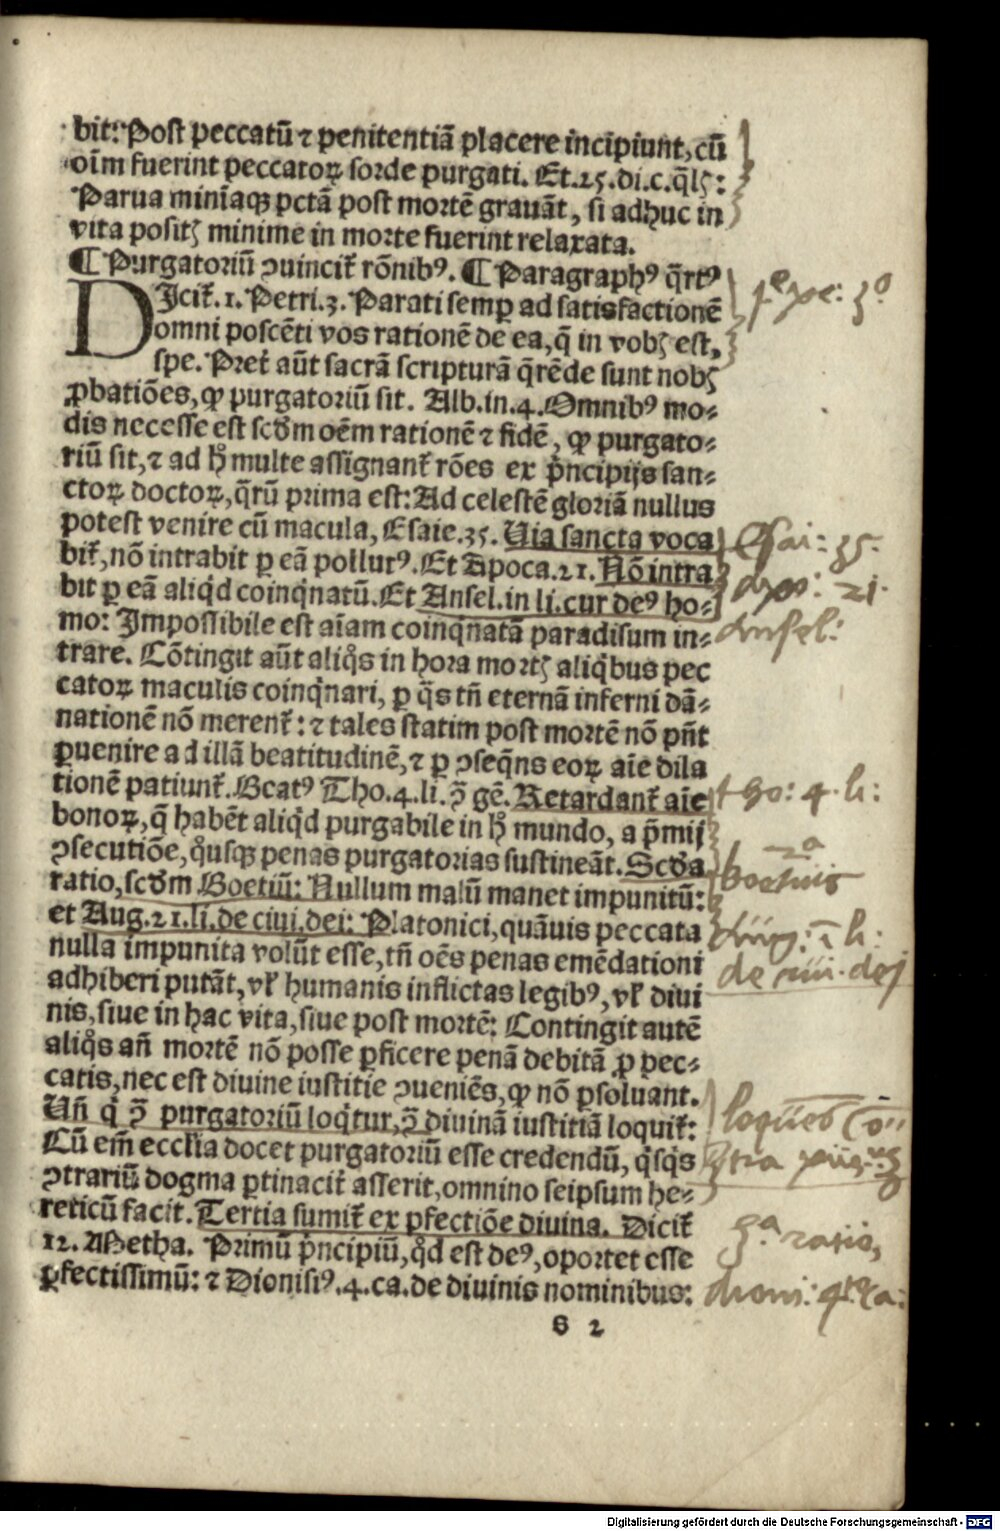 bit: Post peccatū ⁊ penitentiā placere incipiunt, cū
oīm fuerint peccatoꝝ sorde purgati. Et.25.di.c.q̄lꝭ:
Parua miniaqꝫ pctā post mortē grauāt, si adhuc in
vita positꝭ minime in morte fuerint relaxata.
¶ Purgatoriū ꝯuincit̄ rōnibꝰ. ¶ Paragraphꝰ q̄rtꝰ
DIcit̄. 1. Petri.3. Parati semꝑ ad satisfactionē
omni poscēti vos rationē de ea, q̄ in vobꝭ est,
spe. Pret̄ aūt sacrā scripturā q̄rēde sunt nobꝭ
ꝓbatiōes, ꝙ purgatoriū sit. Alb.in.4. Omnibꝰ mo-
dis necesse est scd̄m oēm rationē ⁊ fidē, ꝙ purgato-
riū sit, ⁊ ad hͦ multe assignant̄ rōes ex pͥncipijs san-
ctoꝝ doctoꝝ, q̄rū prima est: Ad celestē gloriā nullus
potest venire cū macula, Esaie.35. Uia sancta voca
bit̄, nō intrabit ꝑ eā pollutꝰ. Et Apoca.21. Nō intra
bit ꝑ eā aliqͥd coinqͥnatū. Et Ansel.in li.cur deꝰ ho-
mo: Impossibile est aīam coinqͥnatā paradisum in-
trare. Cōtingit aūt aliqͦs in hora mortꝭ aliqͥbus pec
catoꝝ maculis coinqͥnari, ꝑ q̄s tn̄ eternā inferni dā-
nationē nō merent̄: ⁊ tales statim post mortē nō pn̄t
ꝑuenire ad illā beatitudinē, ⁊ ꝑ ꝯseq̄ns eoꝝ aīe dila
tionē patiunt̄. Beatꝰ Tho.4.li.ꝯ̄ gē. Retardant̄ aīe
bonoꝝ, q̄ habēt aliqͥd purgabile in hͦ mundo, a p̄mij
ꝯsecutiōe, qͦusqꝫ penas purgatorias sustineāt. Scd̄a
ratio, scd̄m Boetiū: Nullum malū manet impunitū:
et Aug.21.li.de ciui.dei: Platonici, quāuis peccata
nulla impunita volūt esse, tn̄ oēs penas emēdationi
adhiberi putāt, vl̓ humanis inflictas legibꝰ, vl̓ diui
nis, siue in hac vita, siue post mortē: Contingit autē
aliqͦs an̄ mortē nō posse ꝑficere penā debitā ꝓ pec-
catis, nec est diuine iustitie ꝯueniēs, ꝙ nō ꝑsoluant.
Un̄ qͥ ꝯ̄ purgatoriū loqͥtur, ꝯ̄ diuinā iustitiā loquit̄:
Cū em̄ eccl̓ia docet purgatoriū esse credendū, qͥsqͥs
ꝯtrariū dogma ꝑtinacit̄ asserit, omnino seipsum he-
reticū facit. Tertia sumit̄ ex ꝑfectiōe diuina. Dicit̄
12. Metha. Primū pͥncipiū, qͦd est deꝰ, oportet esse
ꝑfectissimū: ⁊ Dionisiꝰ.4.ca.de diuinis nominibus:
s 2
Esai: 35.
Apo: 21.
Ansel:
tho: 4. li:
2ª
boetius
Aug: ī li:
de ciui. dej
3ª ratio,
dioni: 4te ca:
Digitalisierung gefördert durch die Deutsche Forschungsgemeinschaft - DFG